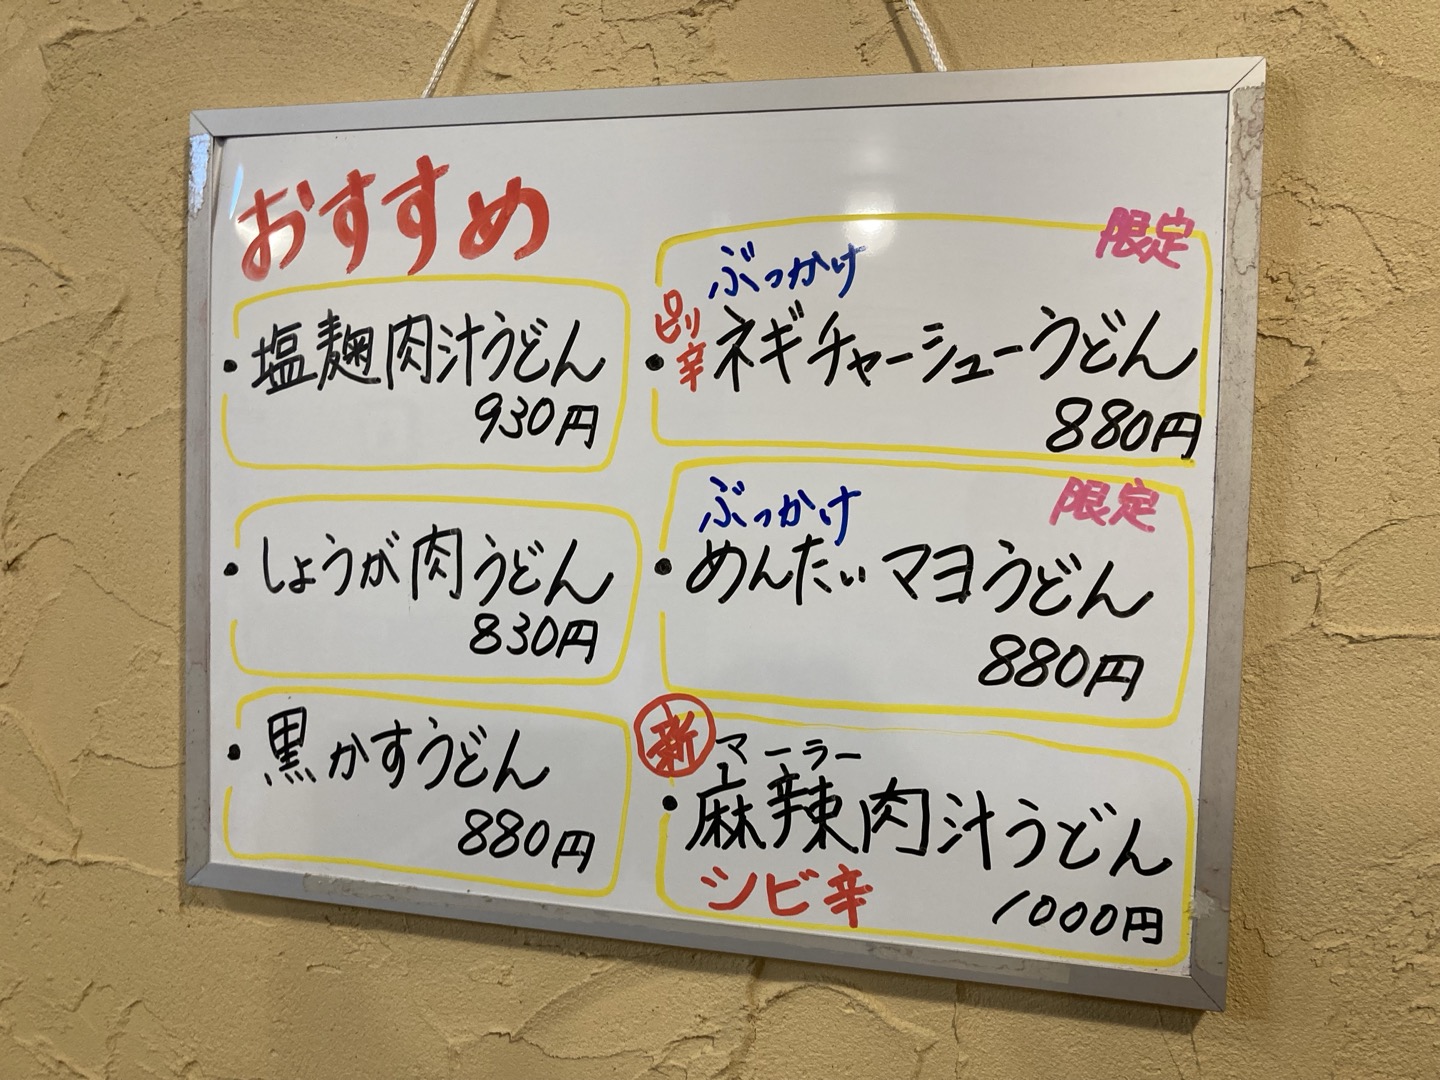 おすすめ
・塩麹肉汁うどん
930円
・しょうが肉うどん
830円
・黒かすうどん
880円
限定
ぶっかけ
・ピリ辛ネギチャーシューうどん
880円
限定
ぶっかけ
・めんたいマヨうどん
880円
新
マーラー
・麻辣肉汁うどん
シビ辛
1000円